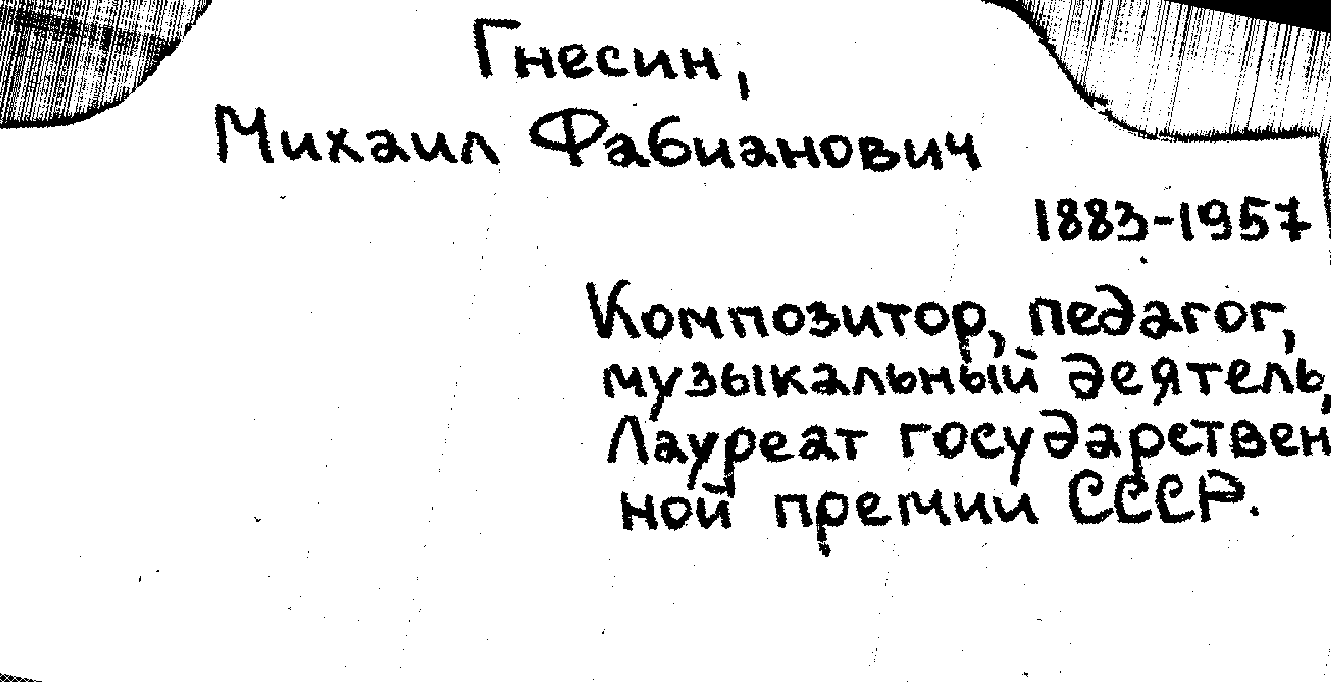 Гнесин,
Михаил Фабианович
1883-1957
Композитор, педагог,
музыкальный деятель,
Лауреат государствен
ной премии СССР.